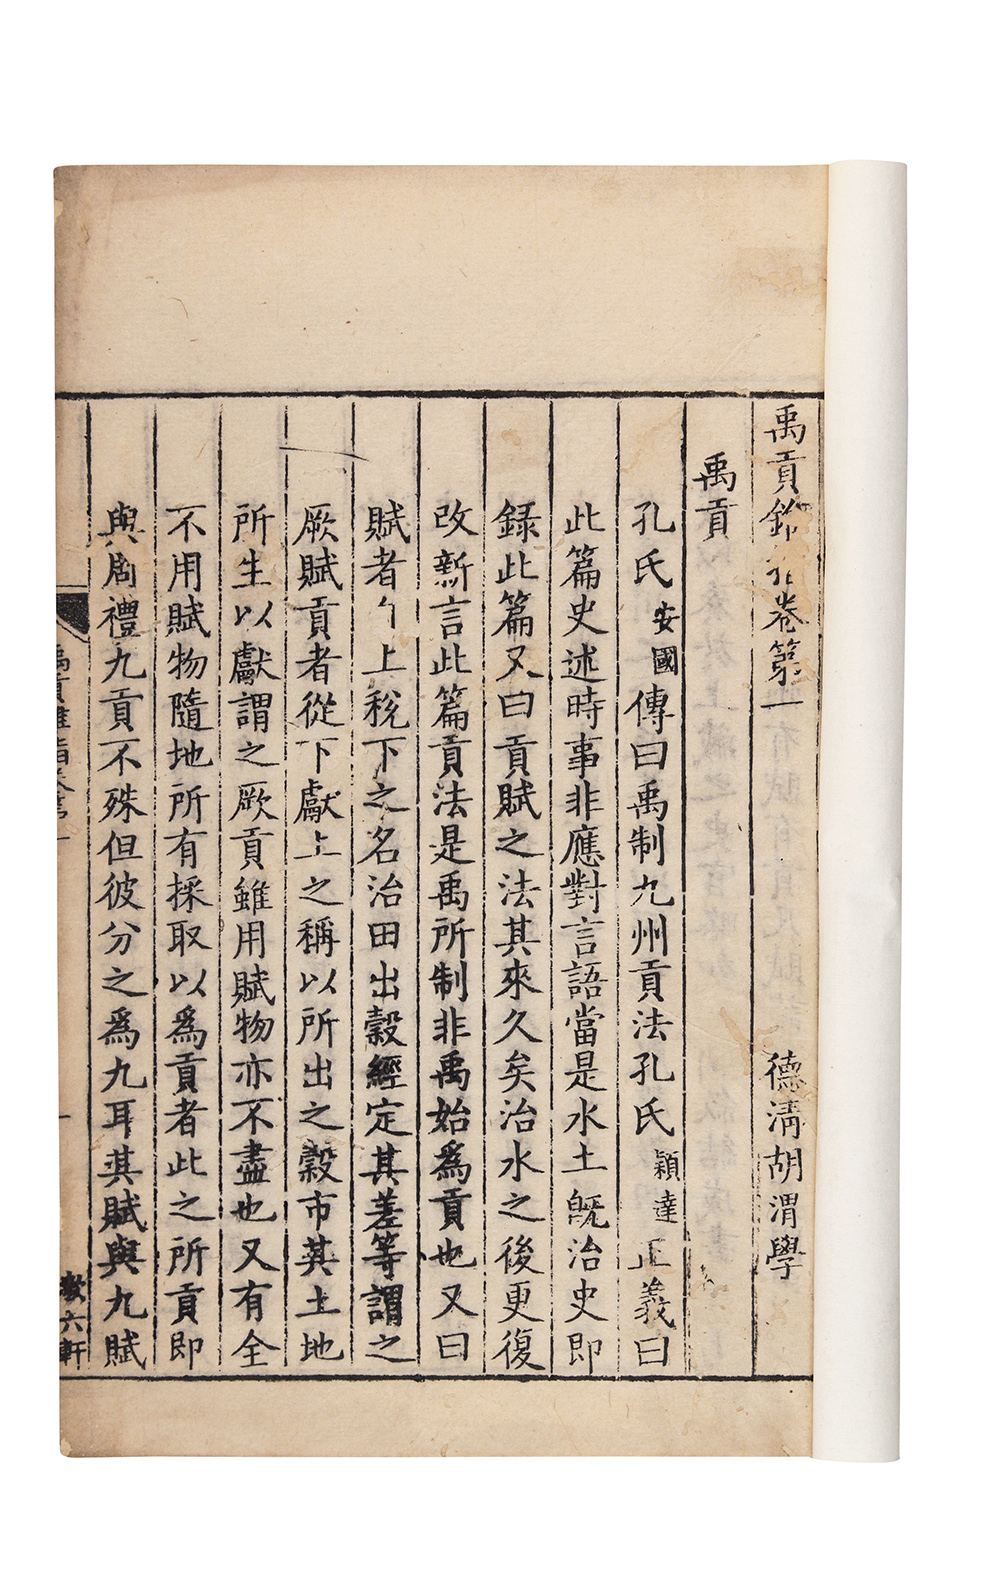 禹貢錐指卷第一 德清胡渭學
禹貢
孔氏安國傳曰禹制九州貢法孔氏穎達正義曰
此篇史述時事非應對言語當是水土既治史即
録此篇又曰貢賦之法其來久矣治水之後更復
改新言此篇貢法是禹所制非禹始爲貢也又曰
賦者自上稅下之名治田出穀經定其差等謂之
厥賦貢者從下獻上之稱以所出之穀市其土地
所生以獻謂之厥貢雖用賦物亦不盡也又有全
不用賦物隨地所有採取以爲貢者此之所貢即
與周禮九貢不殊但彼分之爲九耳其賦與九賦
禹貢錐指卷第一
一
漱六軒